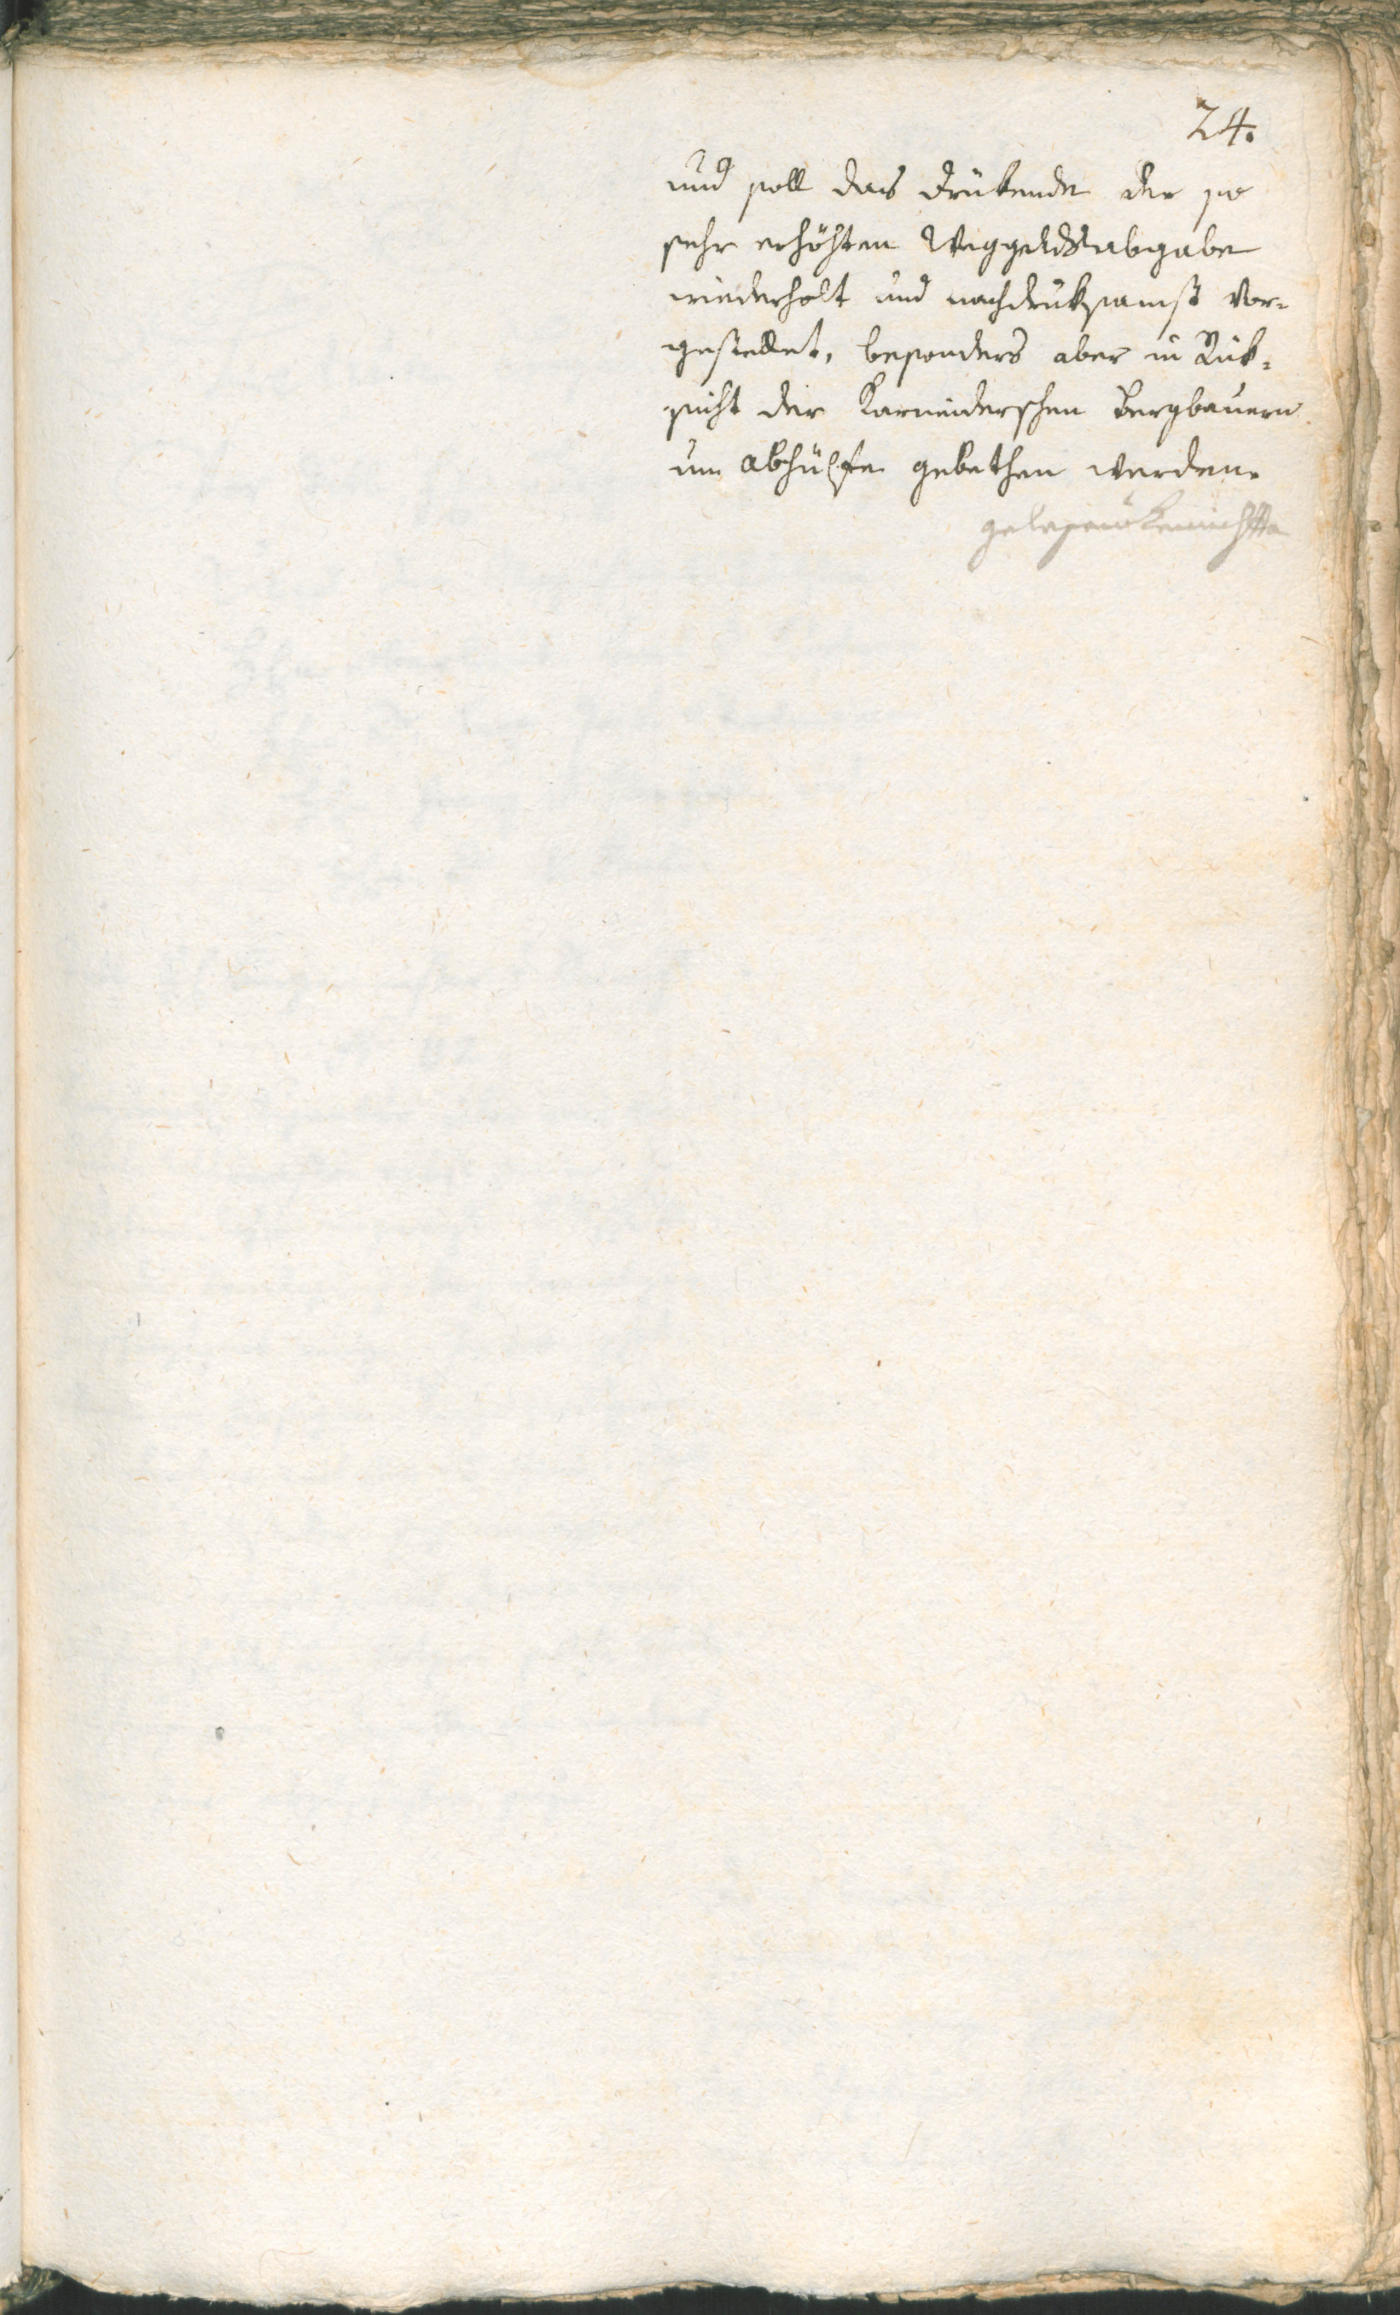 24.
und soll das Drükende der so
sehr erhöhten Weggeldsabgabe
wiederholt und nachdruksamst vor-
gestellet, besonders aber in Rük-
sicht der Karneiderschen Bergbauern
um Abhülfe gebethen werden.
gelesen